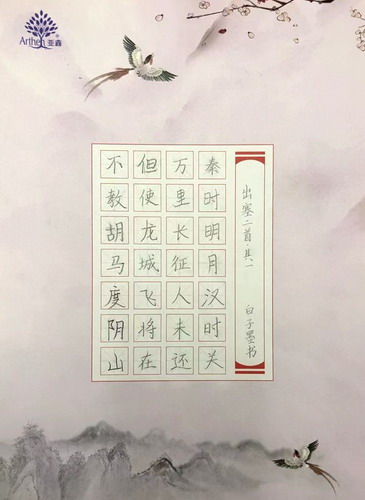 Arthen 亚鑫
出塞二首·其一
白子墨书
秦时明月汉时关
万里长征人未还
但使龙城飞将在
不教胡马度阴山